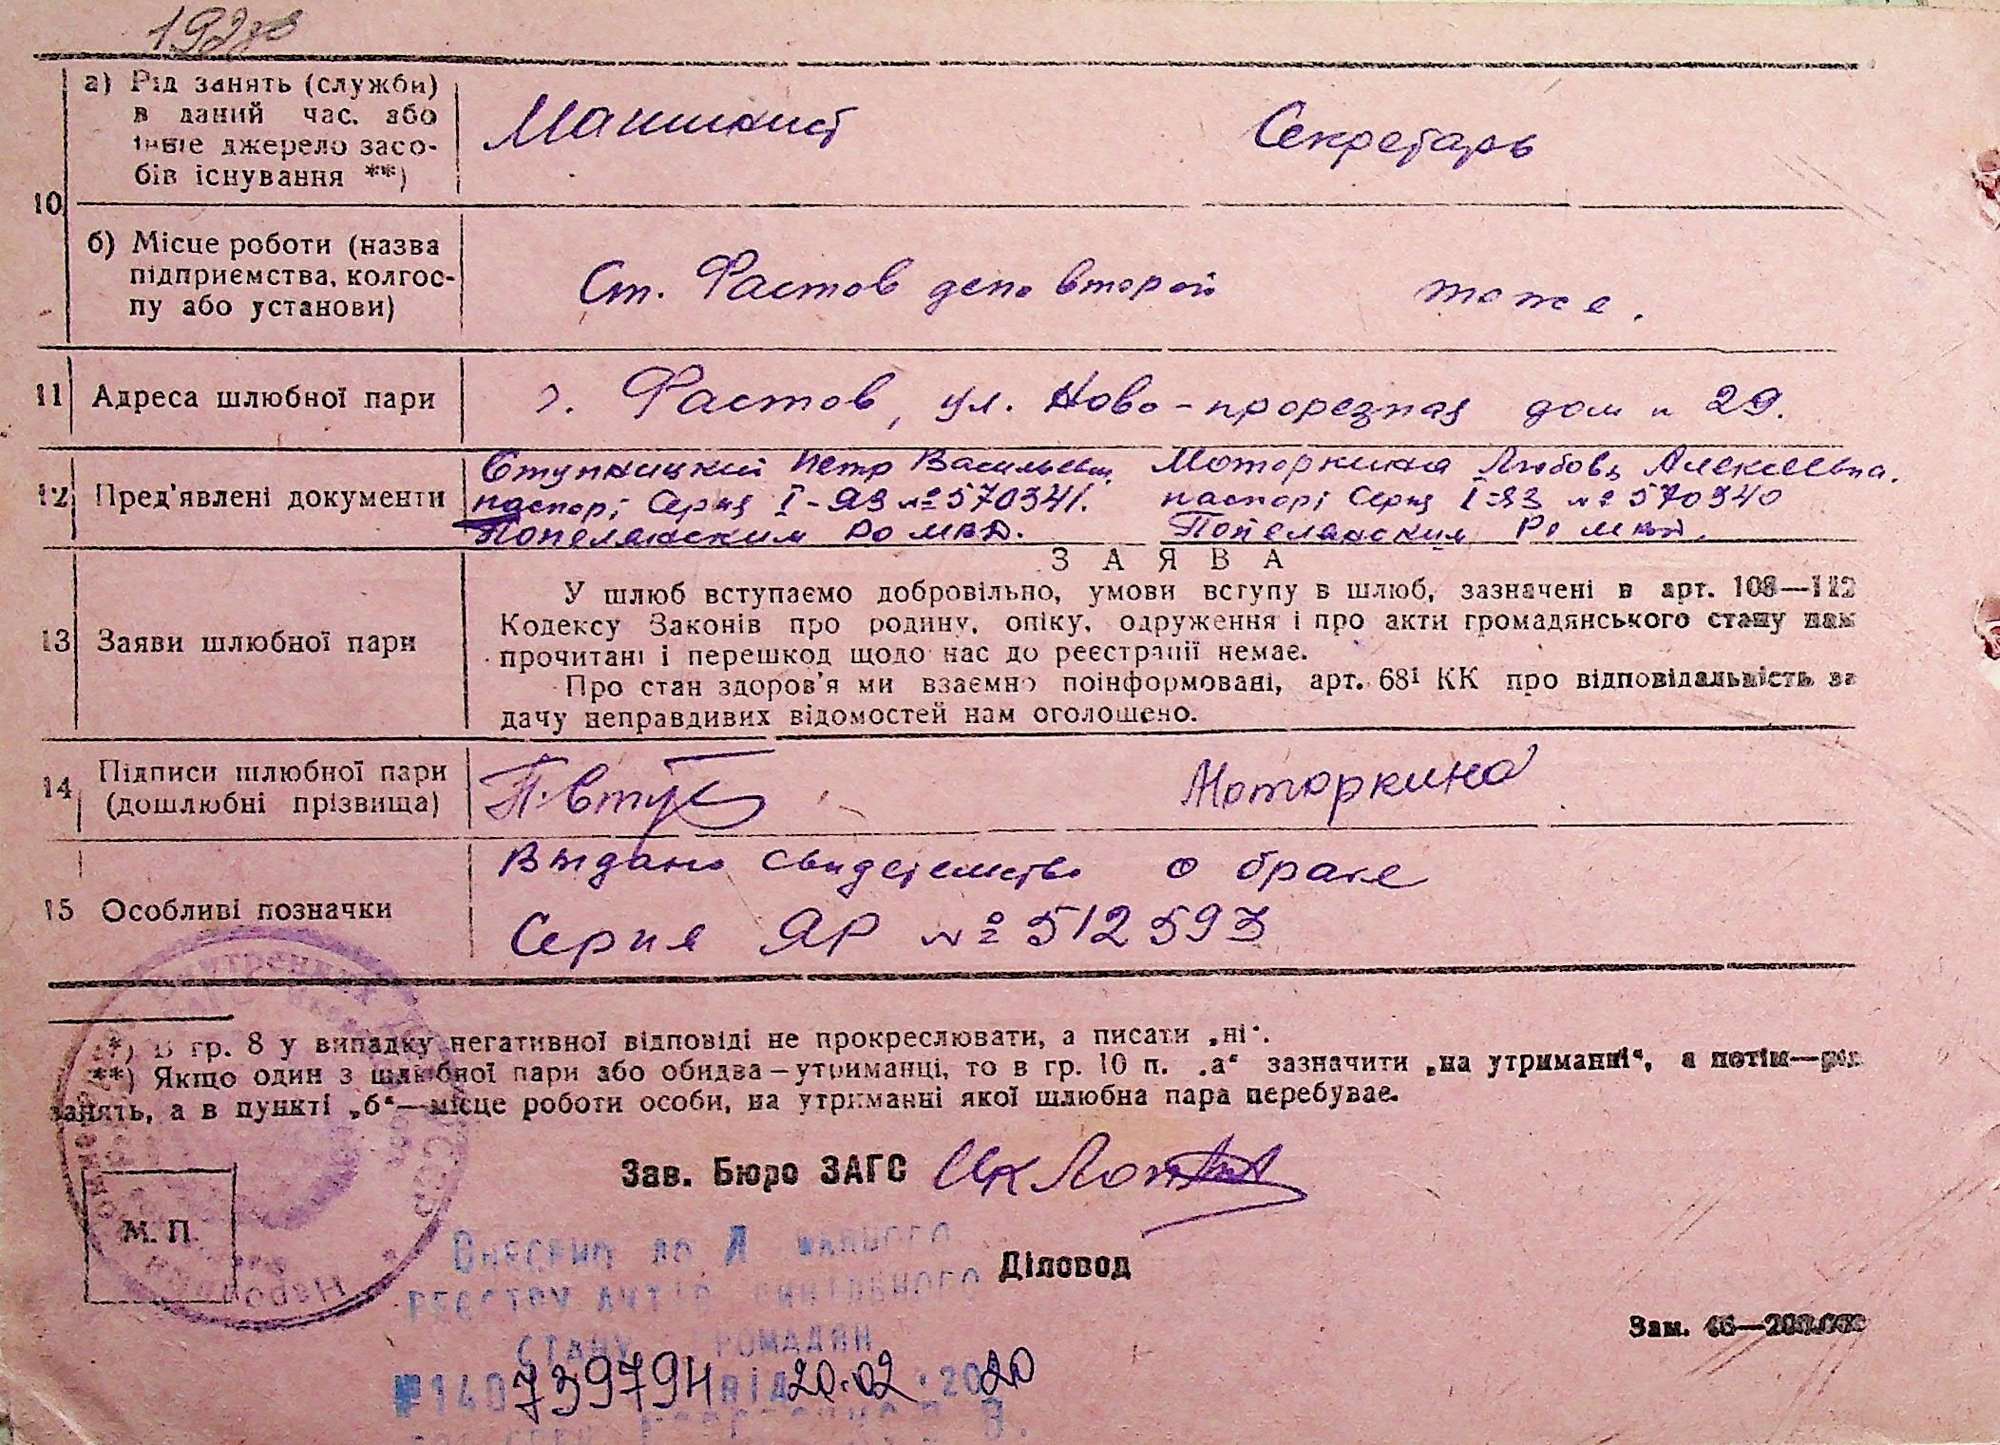 а) Рід занять (служби)
в даний час. або
інше джерело засо-
бів існування **)
Машинист
Секретарь
10
б) Місце роботи (назва
підприємства, колгос-
пу або установи)
Ст. Фастов депо второй
тоже.
11 Адреса шлюбної пари
г. Фастов, ул. Ново-прорезная дом н 29.
12 Пред'явлені документи
Ступницкий Петр Васильевич. Моторкина Любовь Алексеевна.
паспорт Серия I-ЯЗ № 570341. паспорт Серия I-ЯЗ № 570340
Попелянским РО МВД. Попелянским РО МВД.
13 Заяви шлюбної пари
ЗАЯВА
У шлюб вступаємо добровільно, умови вступу в шлюб, зазначені в арт. 108—112
Кодексу Законів про родину, опіку, одруження і про акти громадянського стану нам
прочитані і перешкод щодо нас до реєстрації немає.
Про стан здоров'я ми взаємно поінформовані, арт. 68¹ КК про відповідальність за
дачу неправдивих відомостей нам оголошено.
14 Підписи шлюбної пари
(дошлюбні прізвища)
Моторкина
15 Особливі позначки
Выдано свидетельство о браке
Серия ЯР № 512593
*) В гр. 8 у випадку негативної відповіді не прокреслювати, а писати „ні".
**) Якщо один з шлюбної пари або обидва—утриманці, то в гр. 10 п. „а" зазначити „на утриманні", а потім—рід
занять, а в пункті „б"—місце роботи особи, на утриманні якої шлюбна пара перебуває.
Зав. Бюро ЗАГС
М. П.
Діловод
Внесено до Державного
реєстру актів цивільного
стану громадян
№ 140739794 від 20.02.2020
Зам. 46—200.000